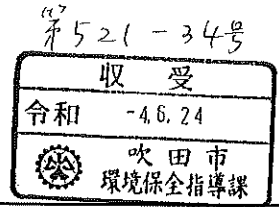 第521-34号
収受
令和 -4.6.24
吹田市
環境保全指導課